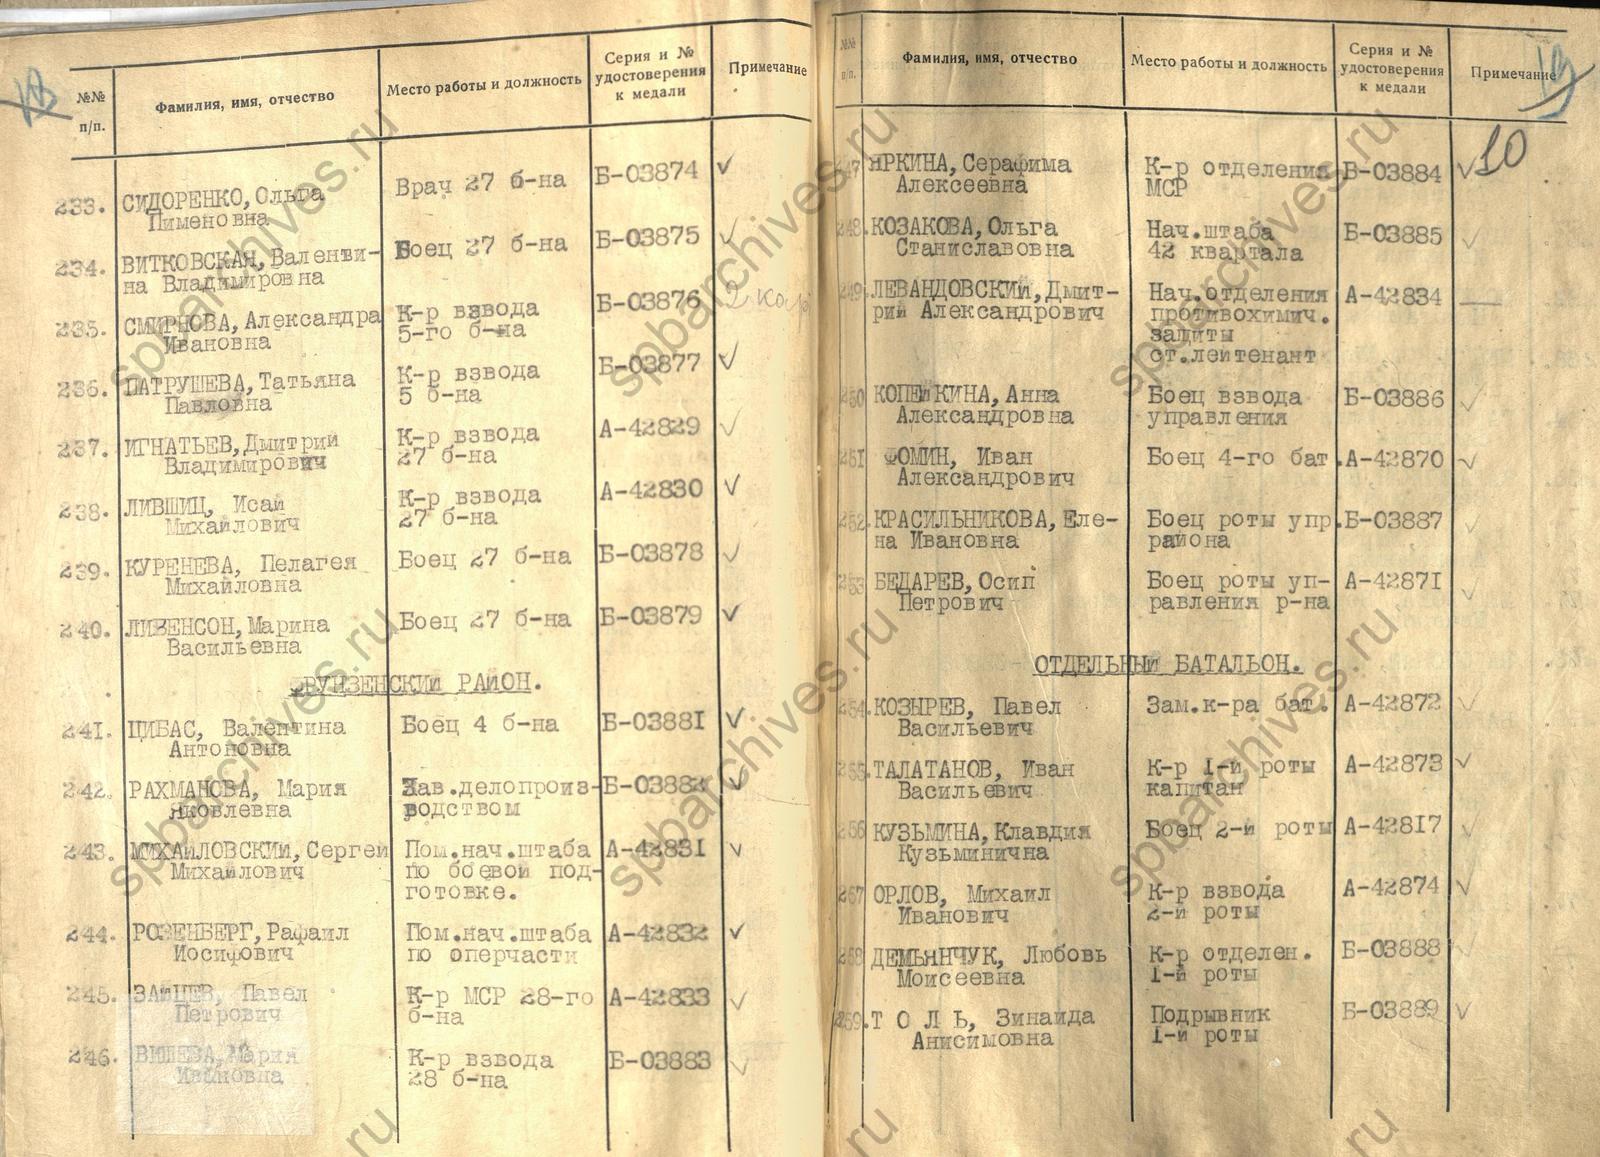 №№ п/п.
Фамилия, имя, отчество
Место работы и должность
Серия и №
удостоверения
к медали
Примечание
233. СИДОРЕНКО, Ольга Врач 27 б-на Б-03874 ✓
Пименовна
234. ВИТКОВСКАЯ, Валенти- Боец 27 б-на Б-03875 ✓
на Владимировна
235. СМИРНОВА, Александра К-р взвода Б-03876
Ивановна 5-го б-на
236. ПАТРУШЕВА, Татьяна К-р взвода Б-03877 ✓
Павловна 5 б-на
237. ИГНАТЬЕВ, Дмитрий К-р взвода А-42829 ✓
Владимирович 27 б-на
238. ЛИВШИЦ, Исай К-р взвода А-42830 ✓
Михайлович 27 б-на
239. КУРЕНЕВА, Пелагея Боец 27 б-на Б-03878 ✓
Михайловна
240. ЛИВЕНСОН, Марина Боец 27 б-на Б-03879 ✓
Васильевна
ФРУНЗЕНСКИЙ РАЙОН.
241. ЦИБАС, Валентина Боец 4 б-на Б-03881 ✓
Антоновна
242. РАХМАНОВА, Мария Зав.делопроиз- Б-03882 ✓
Яковлевна водством
243. МИХАЙЛОВСКИЙ, Сергей Пом.нач.штаба А-42831 ✓
Михайлович по боевой под-
готовке.
244. РОЗЕНБЕРГ, Рафаил Пом.нач.штаба А-42832 ✓
Иосифович по оперчасти
245. ЗАЙЦЕВ, Павел К-р МСР 28-го А-42833 ✓
Петрович б-на
246. ВИШЕВА, Мария К-р взвода Б-03883 ✓
Ивановна 28 б-на
№№ п/п.
Фамилия, имя, отчество
Место работы и должность
Серия и №
удостоверения
к медали
Примечание
10
247 ЯРКИНА, Серафима К-р отделения Б-03884 ✓
Алексеевна МСР
248. КОЗАКОВА, Ольга Нач.штаба Б-03885 ✓
Станиславовна 42 квартала
249. ЛЕВАНДОВСКИЙ, Дмит- Нач.отделения А-42834 —
рий Александрович противохимич.
защиты
ст.лейтенант
250 КОПЕЙКИНА, Анна Боец взвода Б-03886 ✓
Александровна управления
251 ФОМИН, Иван Боец 4-го бат. А-42870 ✓
Александрович
252. КРАСИЛЬНИКОВА, Еле- Боец роты упр. Б-03887 ✓
на Ивановна района
253 БЕДАРЕВ, Осип Боец роты уп- А-42871 ✓
Петрович равления р-на
ОТДЕЛЬНЫЙ БАТАЛЬОН.
254. КОЗЫРЕВ, Павел Зам.к-ра бат. А-42872 ✓
Васильевич
255. ТАЛАТАНОВ, Иван К-р 1-й роты А-42873 ✓
Васильевич капитан
256 КУЗЬМИНА, Клавдия Боец 2-й роты А-42817 ✓
Кузьминична
257 ОРЛОВ, Михаил К-р взвода А-42874 ✓
Иванович 2-й роты
258 ДЕМЬЯНЧУК, Любовь К-р отделен. Б-03888 ✓
Моисеевна 1-й роты
259. Т О Л Ь, Зинаида Подрывник Б-03889 ✓
Анисимовна 1-й роты
spbarchives.ru